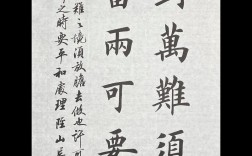 到萬難須
當兩可要
難之境須放膽去做也許可
之時要平和處理